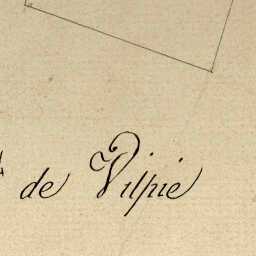 de Vilpie